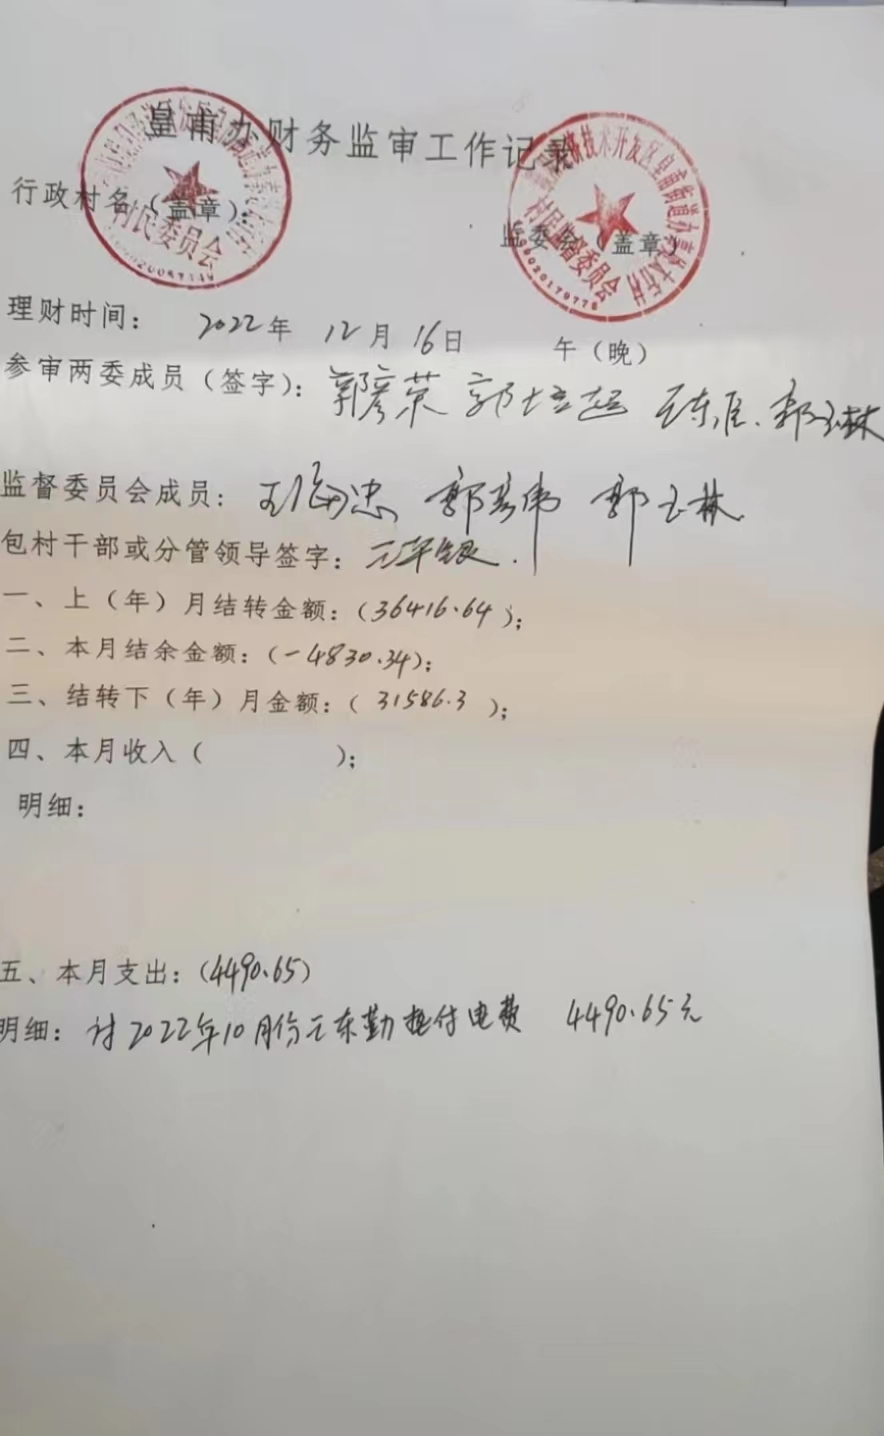 皇甫办财务监审工作记录
行政村名（盖章）：
村民委员会
监委会（盖章）
技术开发区皇甫街道办
村民监督委员会
理财时间： 2022年 12月 16日 午（晚）
参审两委成员（签字）：郭彦荣 郭 郭玉林
监督委员会成员：王海忠 郭彦伟 郭玉林
包村干部或分管领导签字：
一、上（年）月结转金额：（36416.64）；
二、本月结余金额：（-4830.34）；
三、结转下（年）月金额：（ 31586.3 ）；
四、本月收入（ ）；
明细：
五、本月支出：（4490.65）
明细：付2022年10月份元东勤垫付电费 4490.65元